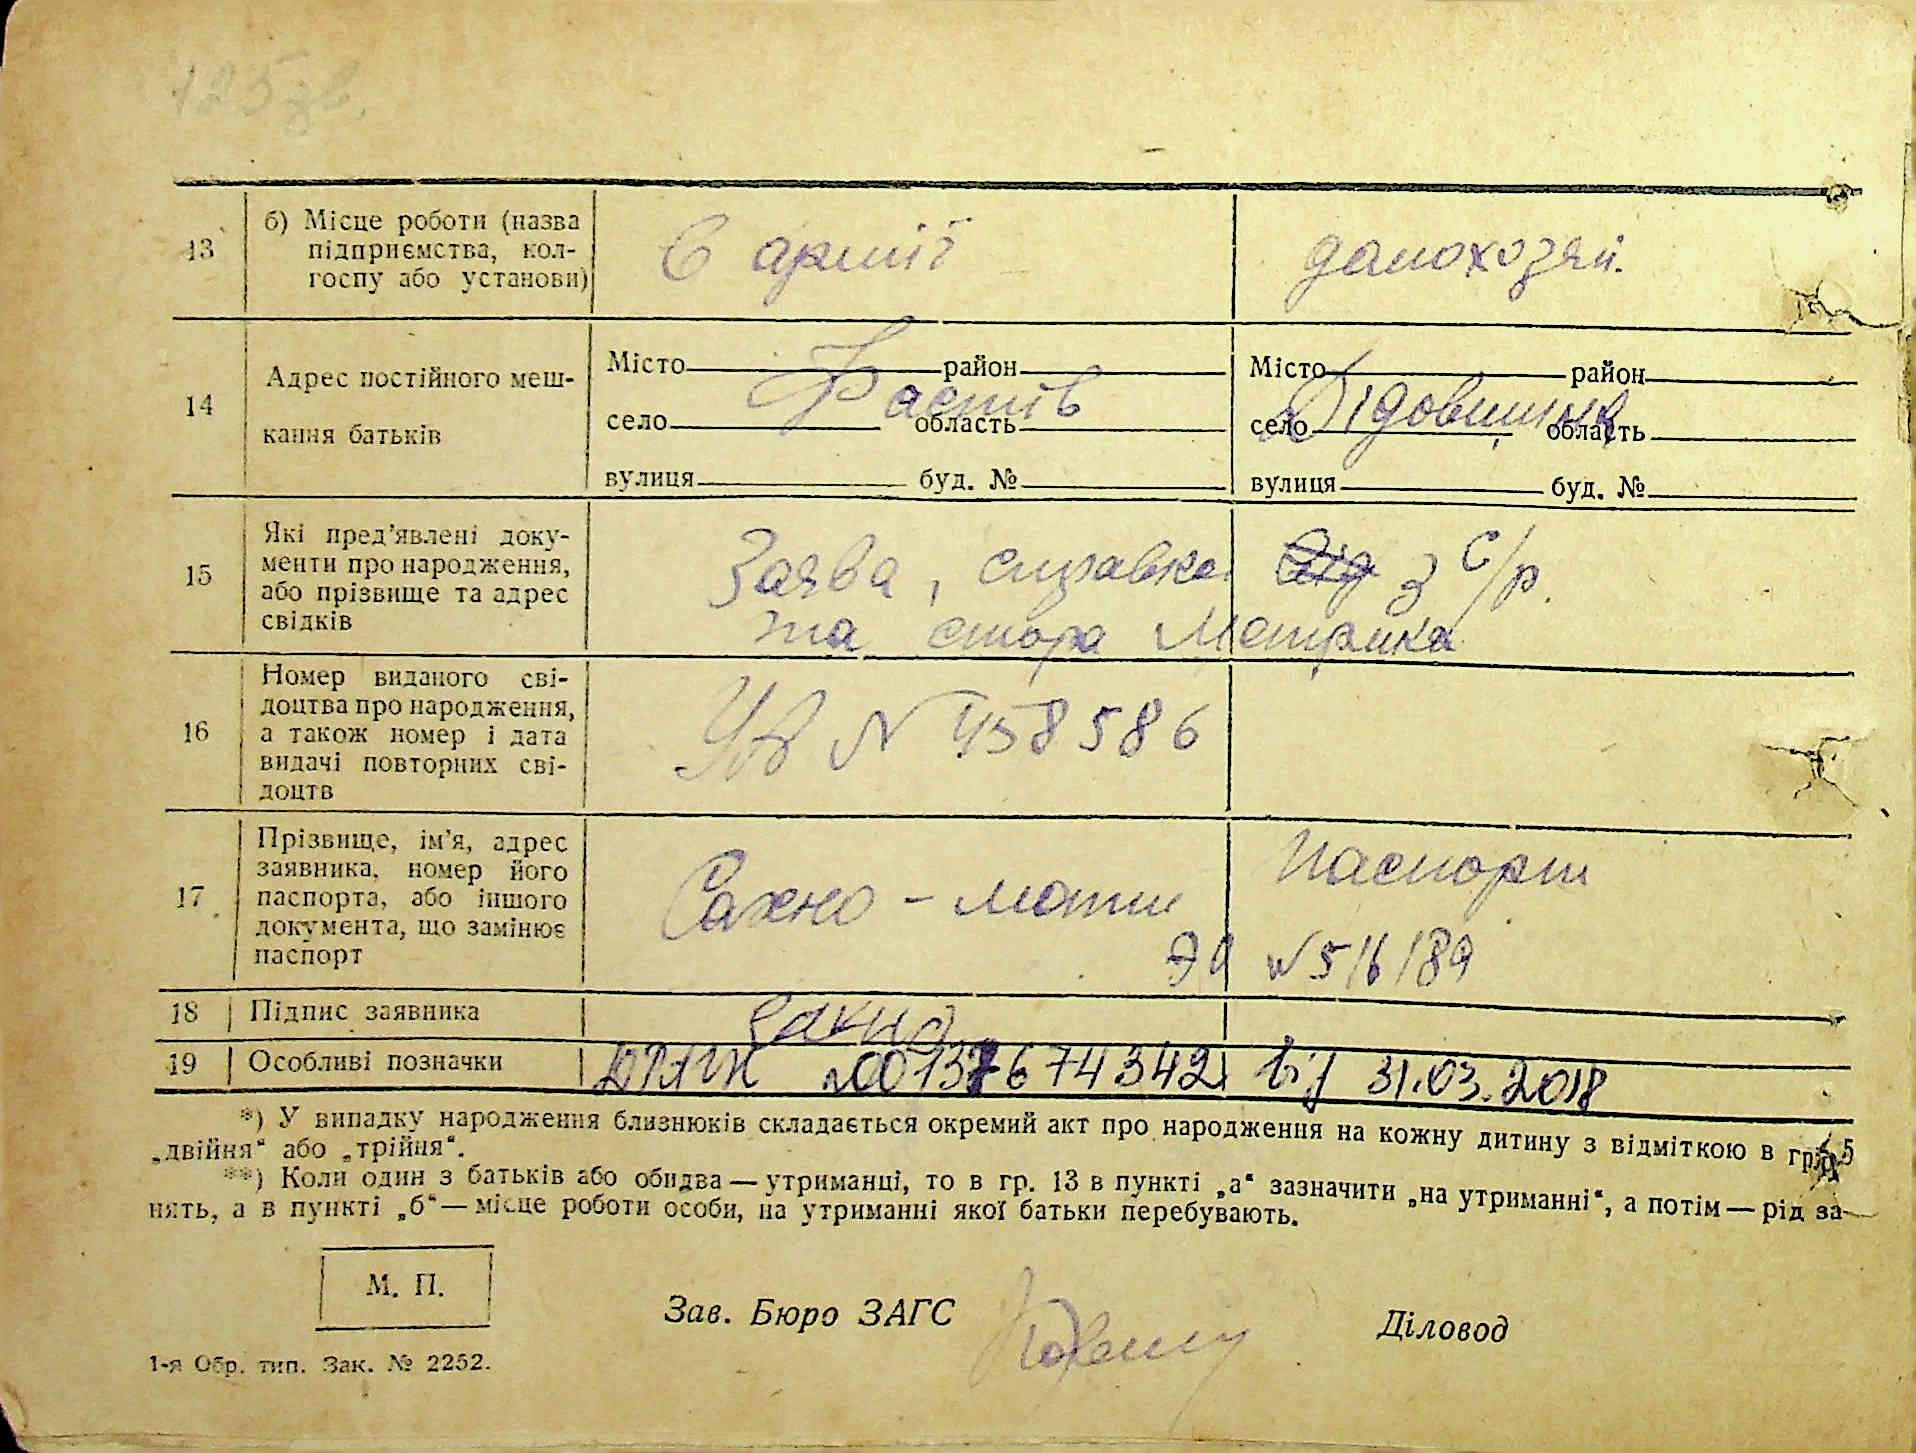 125 зв.
13
б) Місце роботи (назва
підприємства, кол-
госпу або установи)
Є армії
домохозяй.
14
Адрес постійного меш-
кання батьків
Місто район
Фастів
село область
вулиця буд. №
Місто район
Дідовщина
село область
вулиця буд. №
15
Які пред'явлені доку-
менти про народження,
або прізвище та адрес
свідків
Заява, справка від з с/р.
та стара метрика
16
Номер виданого сві-
доцтва про народження,
а також номер і дата
видачі повторних сві-
доцтв
N 458586
17
Прізвище, ім'я, адрес
заявника, номер його
паспорта, або іншого
документа, що замінює
паспорт
Сахно - мати
Паспорт
N 516189
18
Підпис заявника
Сахно
19
Особливі позначки
ДРАЦС №00137674342 від 31.03.2018
*) У випадку народження близнюків складається окремий акт про народження на кожну дитину з відміткою в гр. 5
„двійня“ або „трійня“.
**) Коли один з батьків або обидва — утриманці, то в гр. 13 в пункті „а“ зазначити „на утриманні“, а потім — рід за-
нять, а в пункті „б“ — місце роботи особи, на утриманні якої батьки перебувають.
М. П.
Зав. Бюро ЗАГС
Діловод
1-я Обр. тип. Зак. № 2252.